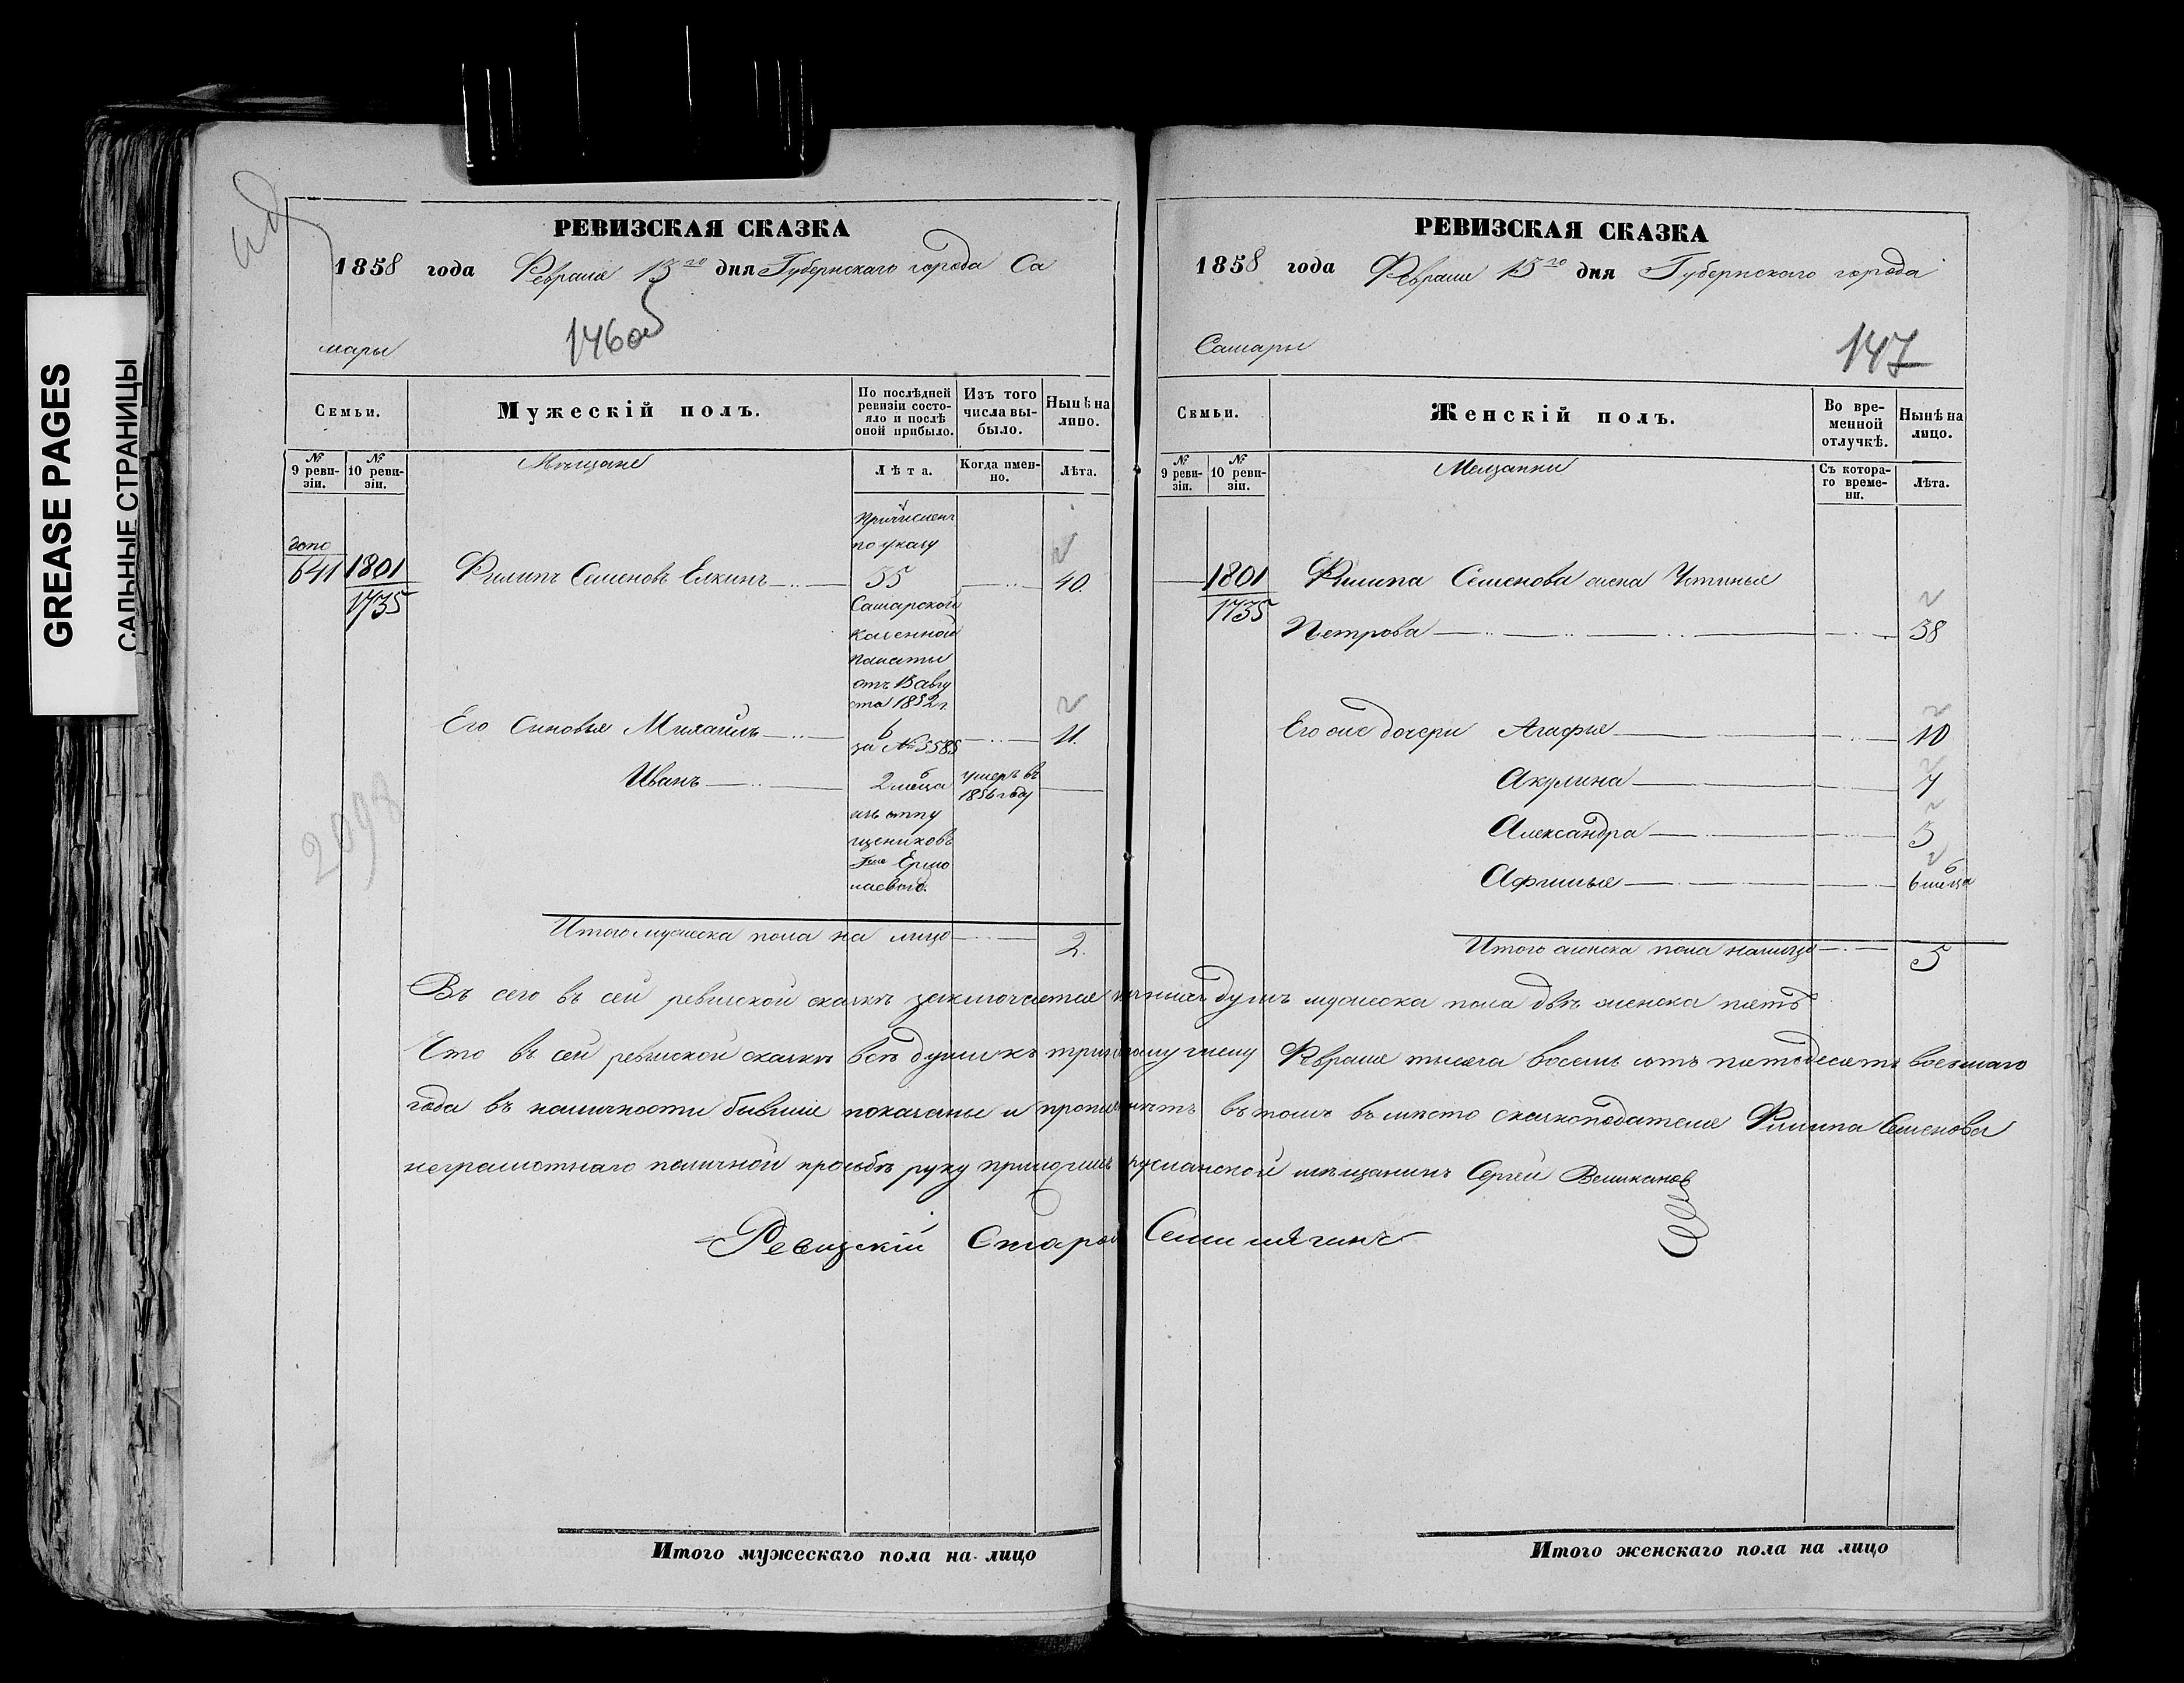 GREASE PAGES
САЛЬНЫЕ СТРАНИЦЫ
РЕВИЗСКАЯ СКАЗКА
1858 года Февраля 13го дня Губернскаго города Са
мары
146об
Семьи.
Мужескій полъ.
По послѣдней ревизіи состо-
яло и послѣ
оной прибыло.
Изъ того
числа вы-
было.
Нынѣ на
лицо.
№ 9 реви-
зіи.
№ 10 реви-
зіи.
Мѣщане
Лѣта.
Когда имен-
но.
Лѣта.
Причисленъ
по указу
допо
641 1801 Филипъ Семеновъ Елкинъ 35 40.
1735
Самарской
казенной
палаты
отъ 13 авгу
ста 1852 г.
Его Сыновья Михаилъ 6 11.
за № 5585
Иванъ 2 м6ца умеръ въ
1856 году
изъ отпу
щениковъ
Гна Ермо
лаевого.
2098
Итого мужеска пола на лицо 2.
РЕВИЗСКАЯ СКАЗКА
1858 года Февраля 13го дня Губернскаго города
Самары
147
Семьи.
Женскій полъ.
Во вре-
менной
отлучкѣ.
Нынѣ на
лицо.
№ 9 реви-
зіи.
№ 10 реви-
зіи.
Мещанки
Съ котора-
го време-
ни.
Лѣта.
1801 Филипа Семенова жена Устинья
1735
Петрова 38
Его же дочери Агафья 10
Акулина 7
Александра 3
Афимья 6 м6ца
Итого женска пола налицо 5
Въ сего въ сей ревизской сказкѣ заключается душъ мужеска пола двѣ женска пять
Что въ сей ревизской сказкѣ всѣ души къ числу Февраля тысяча восемь сотъ пятьдесятъ восьмаго
года въ наличности бывшія показаны и въ томъ въ мѣсто сказкоподателя Филипа Семенова
неграмотнаго по личной прозьбѣ руку приложилъ мѣщанинъ Сергей Великанов
Ревизскій Староста
Итого мужескаго пола на лицо
Итого женскаго пола на лицо